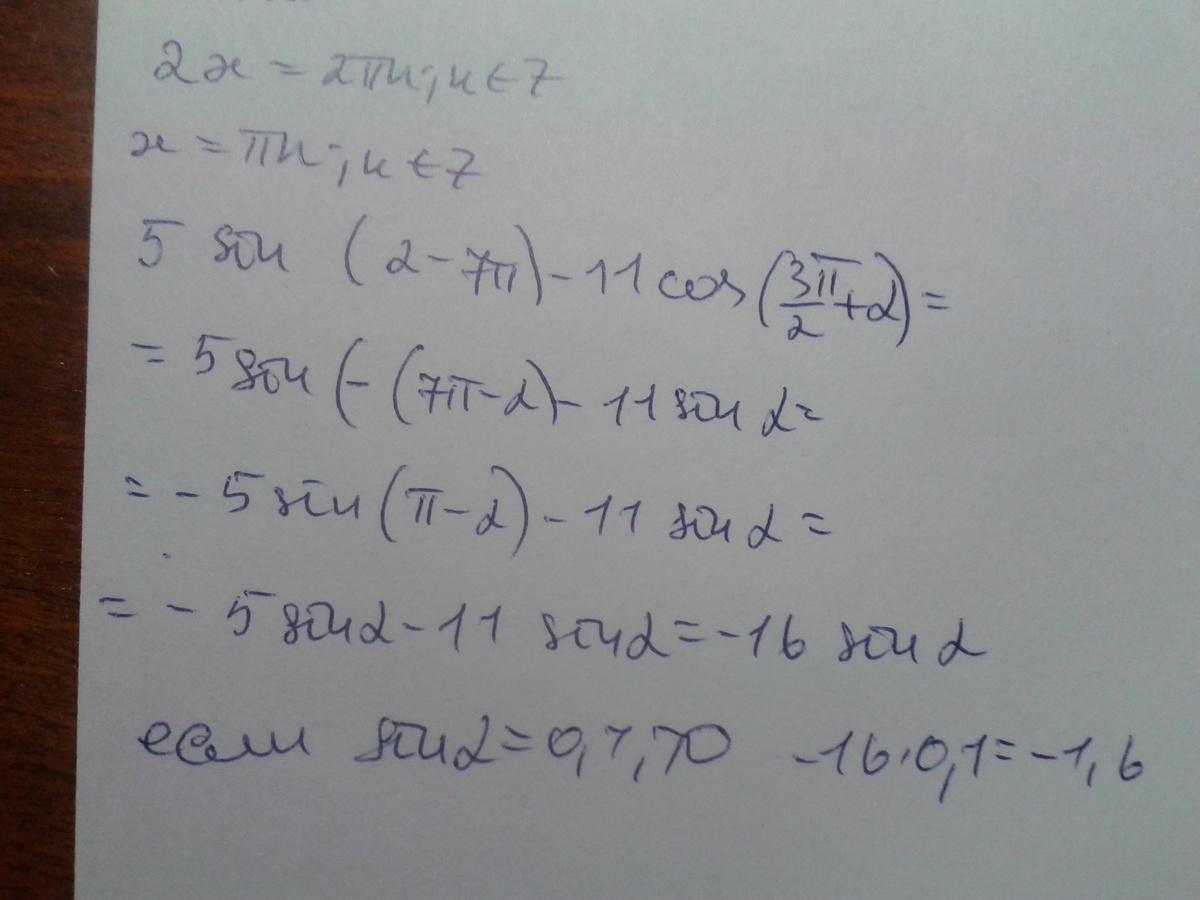 2x = 2πn; n ∈ Z
x = πn; n ∈ Z
5 sin (α - 7π) - 11 cos (3π/2 + α) =
= 5 sin (- (7π - α) - 11 sin α =
= - 5 sin (π - α) - 11 sin α =
= - 5 sin α - 11 sin α = -16 sin α
если sin α = 0,1, то -16·0,1 = -1,6